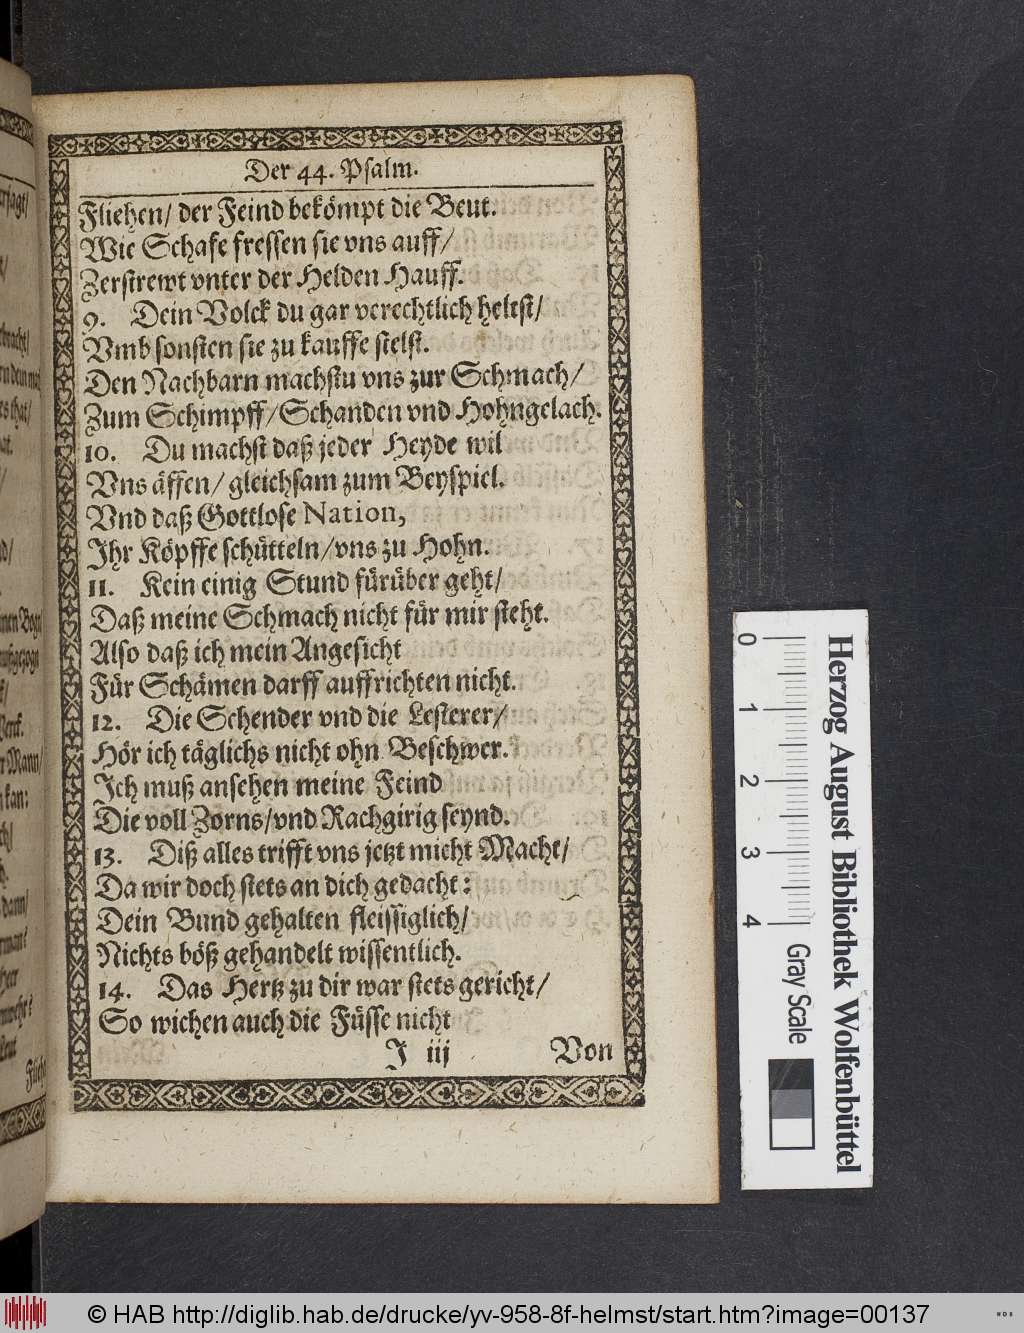 Der 44. Psalm.
Fliehen/ der Feind bekömpt die Beut.
Wie Schafe fressen sie vns auff/
Zerstrewt vnter der Helden Hauff.
9. Dein Volck du gar verechtlich heltst/
Vmb sonsten sie zu kauffe stelst.
Den Nachbarn machstu vns zur Schmach/
Zum Schimpff/Schanden vnd Hohngelach.
10. Du machst daß jeder Heyde wil
Vns äffen/ gleichsam zum Beyspiel.
Vnd daß Gottlose Nation,
Ihr Köpffe schütteln/vns zu Hohn.
11. Kein einig Stund fürüber geht/
Daß meine Schmach nicht für mir steht.
Also daß ich mein Angesicht
Für Schämen darff auffrichten nicht.
12. Die Schender vnd die Lesterer/
Hör ich täglichs nicht ohn Beschwer.
Ich muß ansehen meine Feind
Die voll Zorns/vnd Rachgirig seynd.
13. Diß alles trifft vns jetzt micht Macht/
Da wir doch stets an dich gedacht:
Dein Bund gehalten fleissiglich/
Nichts böß gehandelt wissentlich.
14. Das Hertz zu dir war stets gericht/
So wichen auch die Füsse nicht
I iij Von
Herzog August Bibliothek Wolfenbüttel
0 1 2 3 4 Gray Scale
© HAB http://diglib.hab.de/drucke/yv-958-8f-helmst/start.htm?image=00137